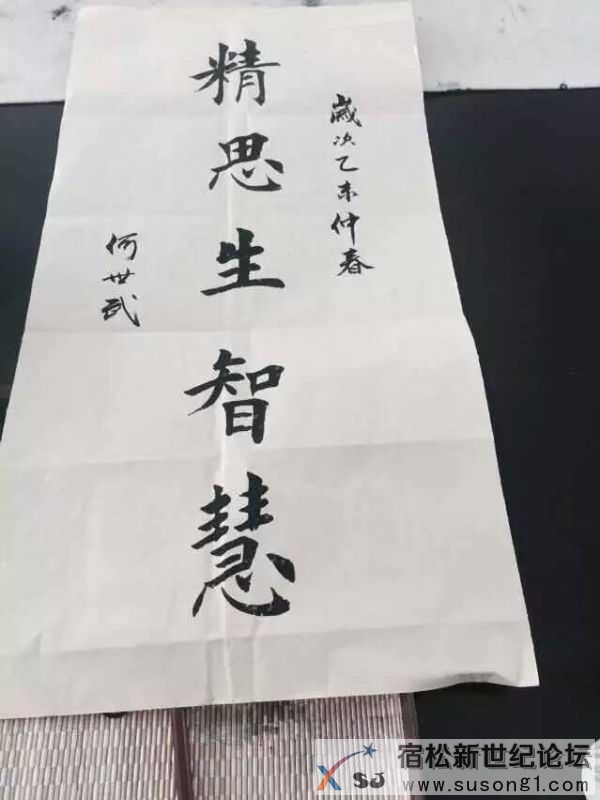 歲次乙未仲春
精思生智慧
何世武
宿松新世纪论坛
SJ
www.susong1.com